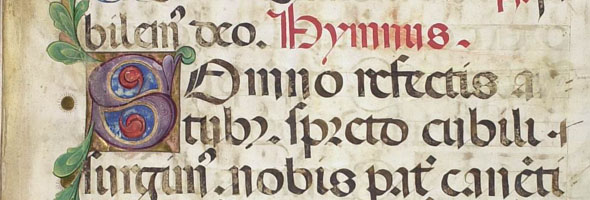 bilem⁹ deo. Hymnus.
Somno refectis ar
tubꝫ. sp̱reto cubili·
surgim⁹. nobis pat̉ canēti